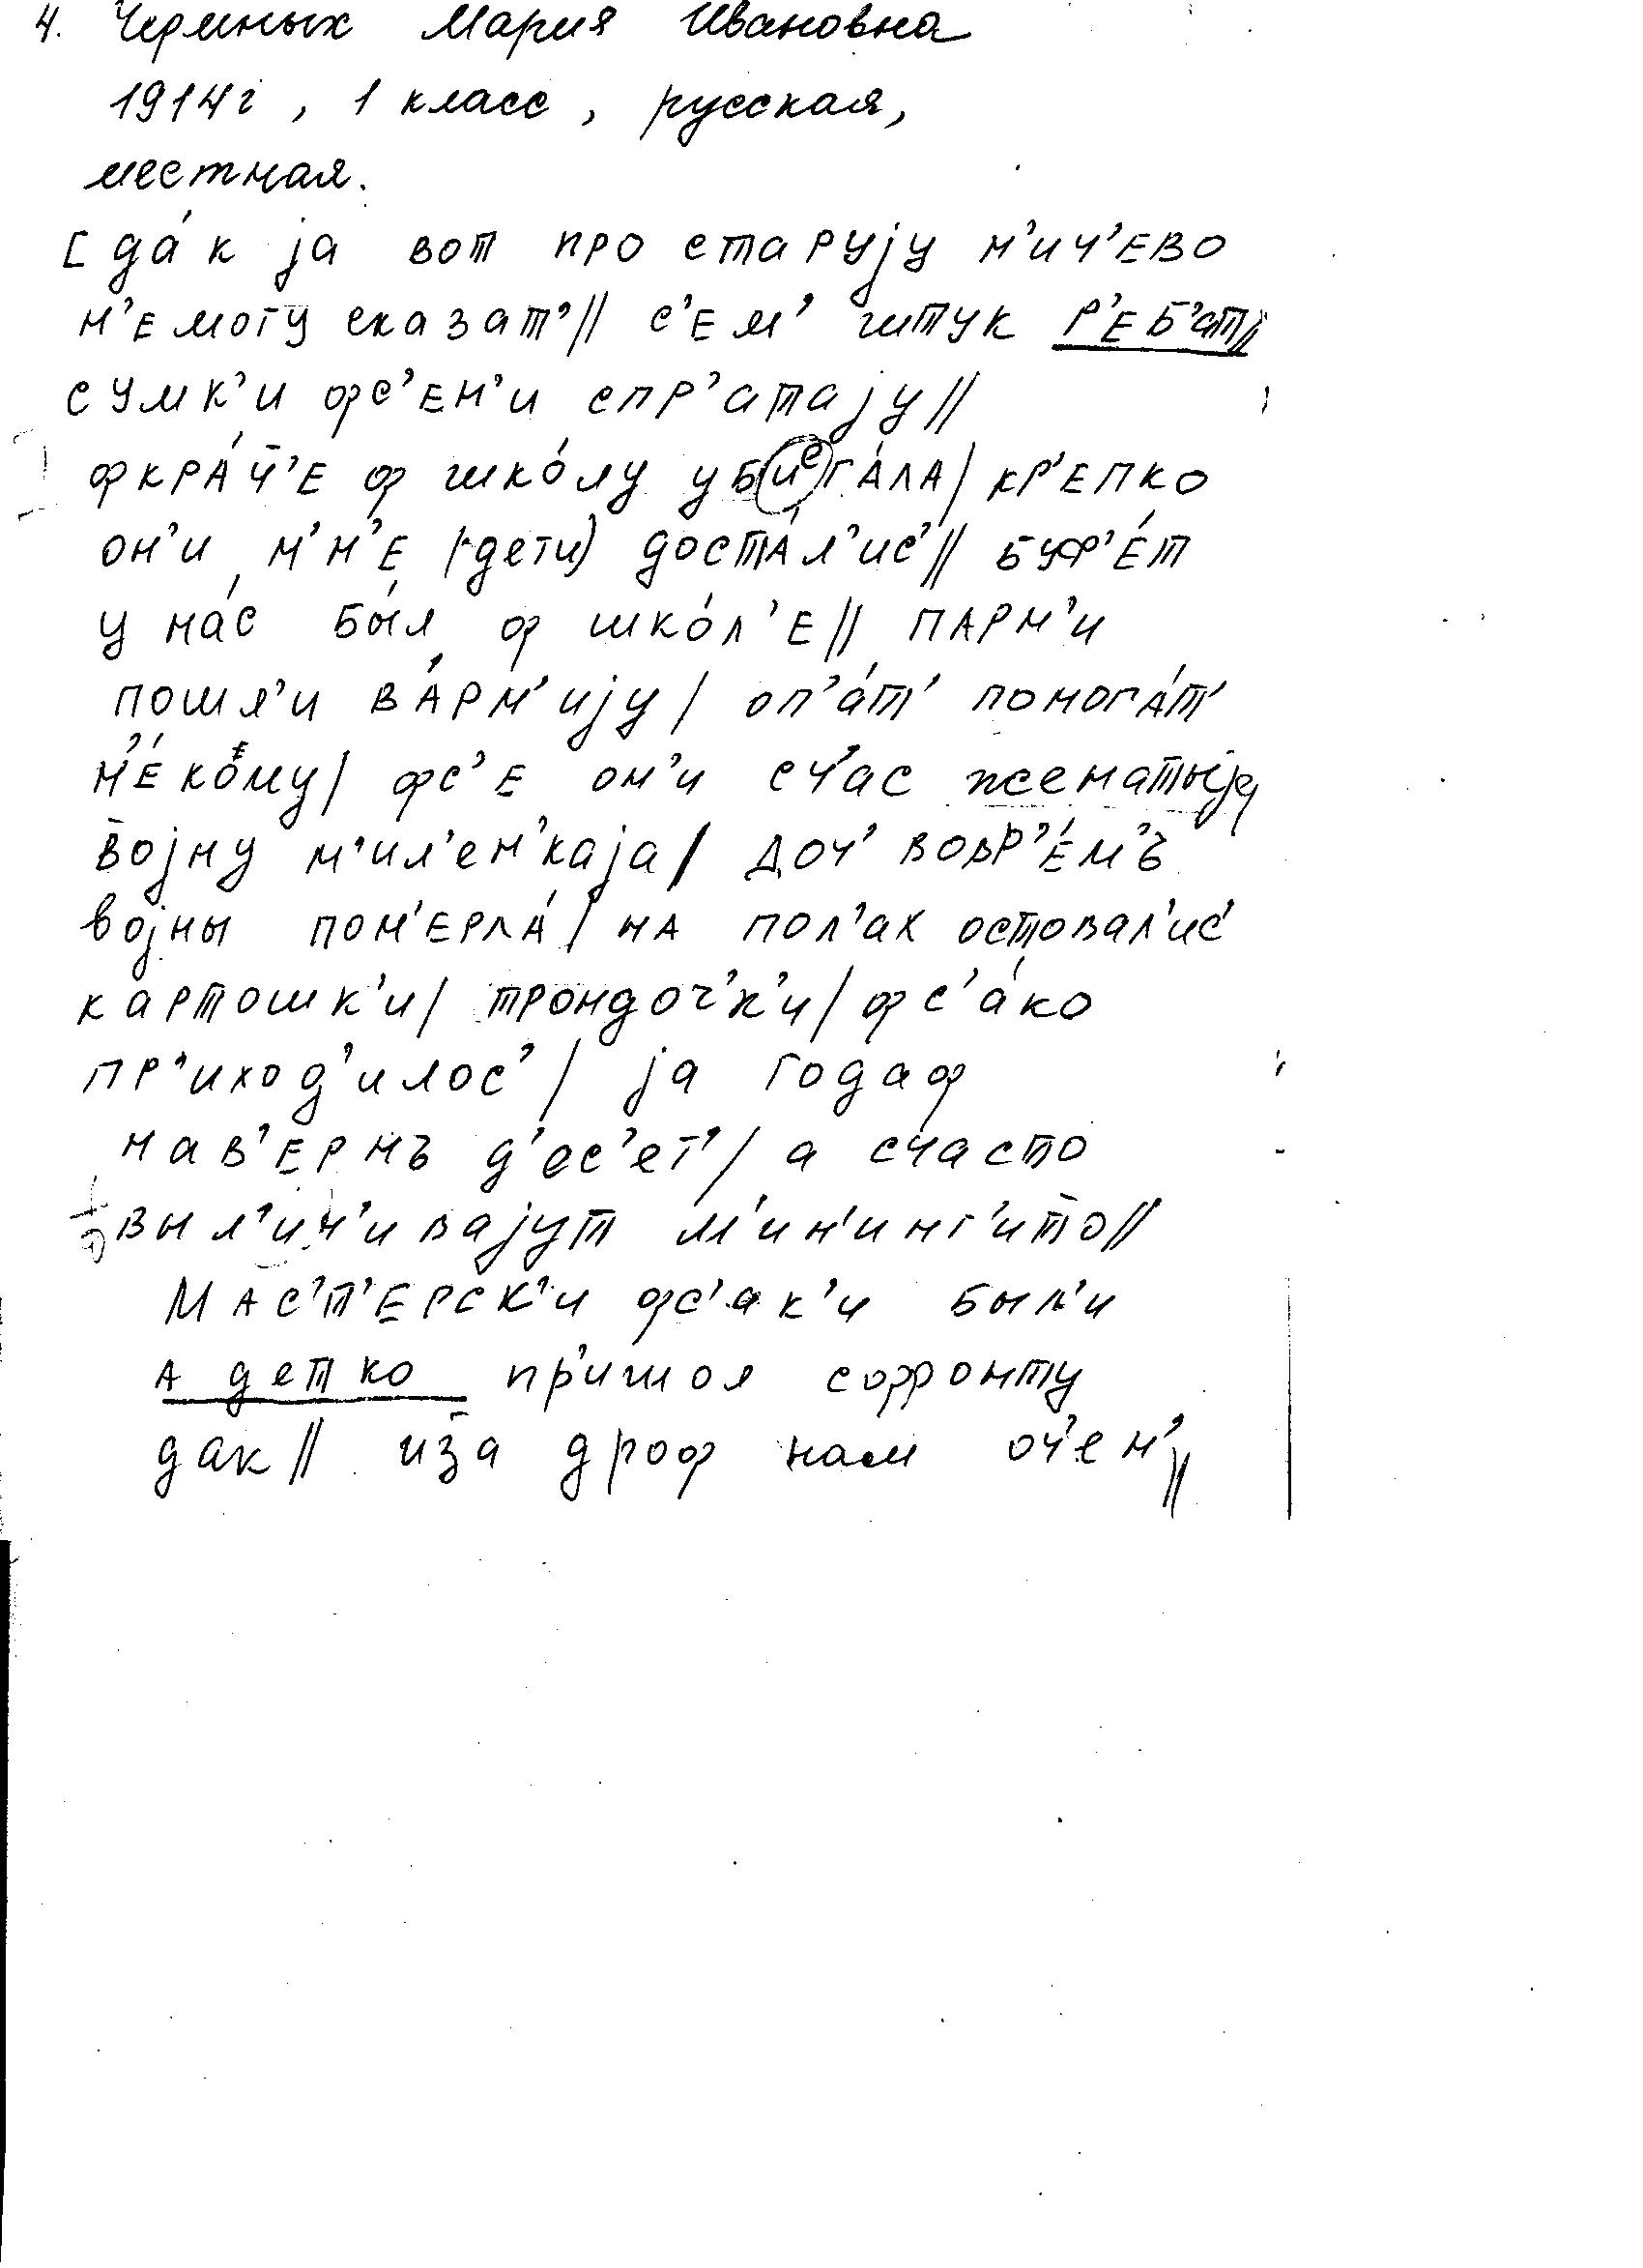 4. Черных Мария Ивановна
1914г, 1 класс, русская,
местная.
[да́к jа вот про старуjу н'ич'ево
н'емогу сказат'// с'ем' штук р'еб'ат//
сумк'и фс'ен'и спр'атаjу//
фкра́ч'е ф шко́лу убига́ла/ кр'епко
он'и м'н'е (дети) доста́л'ис'// буф'е́т
у на́с бы́л ф шко́л'е// парн'и
пошл'и в а́рм'иjу/ оп'а́т' помога́т'
н'е́кому/ фс'е он'и сч'ас женатыjе
воjну м'ил'ен'каjа/ доч' вовр'е́м'ъ
воjны пом'ерла́/ на пол'ах оставал'ис'
картошк'и/ трондоч'к'и/ фс'а́ко
пр'иход'илос'/ jа годаф
нав'ернъ д'ес'ет'/ а счасто
выл'ич'иваjут м'ин'инг'ито//
Мас'т'ерск'и фс'ак'и был'и
а детко пр'ишол сорронту
дак// иза дроф нам оч'ен'//